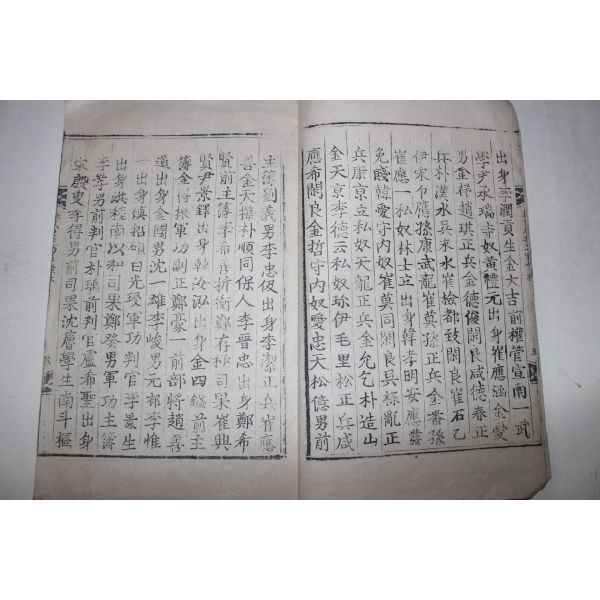 出身李潤貢生金大吉前權管宣南一武
學尹承瑞寺奴黃禮元出身崔應涵金愛
男金釋趙琪正兵金德俊閑良咸德春正
兵朴漢水吳米水崔檢都致閑良崔石乙
伊宋卜應孫康武龍崔莫孫正兵金番孫
崔應一私奴林士立出身韓孝明安應發
免賤韓愛守內奴崔莫同閑良吳祿亂正
兵康立私奴天龍正兵金允乞朴造山
金天京李德云私奴珎伊毛里松正兵咸
應希閑良金哲守內奴愛忠天松億男前
主簿劉義男李忠伋出身李潔正兵崔應
善金天楷朴順同保人李晋忠出身鄭希
賢前主簿李希善折衝鄭存祕司果崔興
賢尹景鐸出身韓汝泓出身金四鎰前主
簿金得振軍功副正鄭豪一前部將趙善
道出身金國男沈一雄李峻男元祁李惟
一出身鎮招碩日光受軍功判官李景生
出身洪程南以和司果鄭癸男軍功主簿
李芽男前判官朴瑀前判官盧希聖出身
宋慶叟李得男前司果沈層學生南斗樞